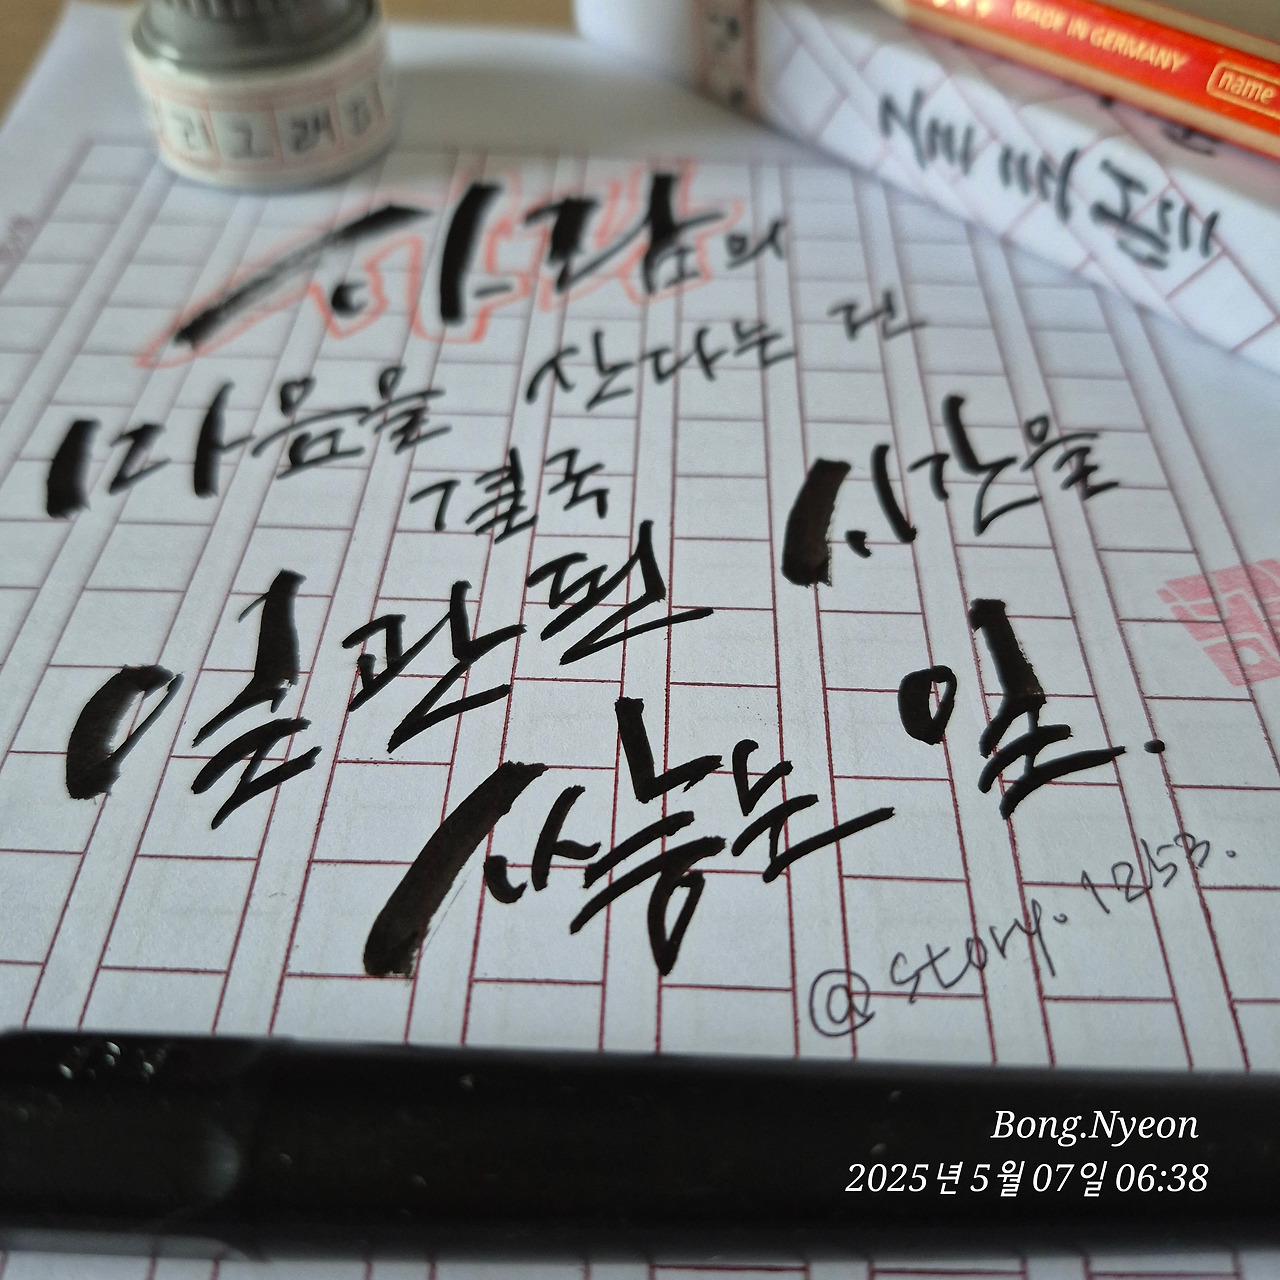 리그래피
MADE IN GERMANY
name
사람의
마음을 산다는 건
결국 시간을
일관된
쌓는 일.
@story.1253.
Bong.Nyeon
2025년 5월 07일 06:38